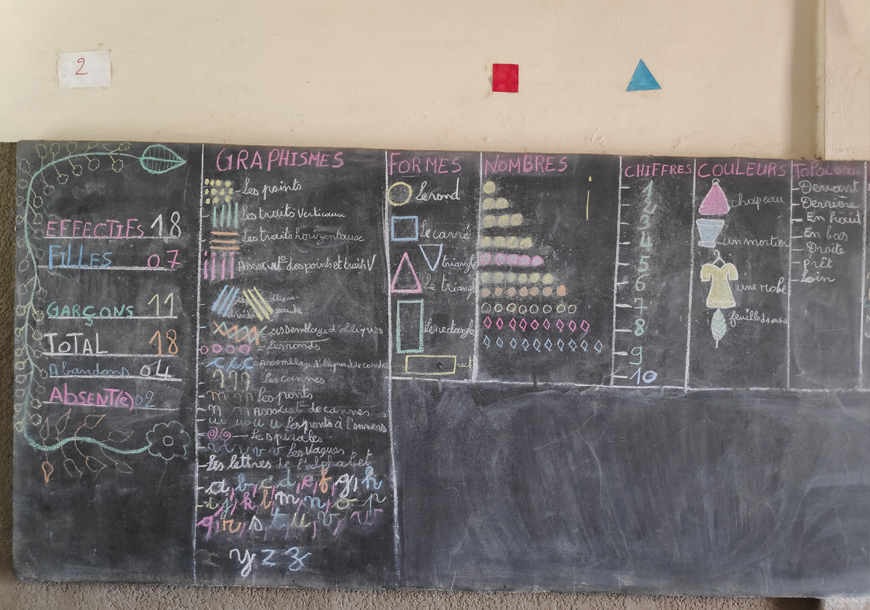 2
EFFECTIFS 18
FILLES 07
GARÇONS 11
TOTAL 18
Abandons 04
ABSENT(e) 02
GRAPHISMES
Les points
les traits verticaux
Les traits horizontaux
Associat° des points et traits V
assemblage d'obliques
Les ronds
Assemblage d'obliques de
Les cannes
les ponts
Associat° de cannes
les ponts à l'envers
Les spirales
les vagues
les lettres de l'alphabet
a, b, c, d, e, f, g, h
i, j, k, l, m, n, o, p
q, r, s, t, u, v, w
y z z
FORMES
Le rond
Le carré
triangle
Le triangle
Le rectangle
NOMBRES
i
CHIFFRES
1
2
3
4
5
6
7
8
9
10
COULEURS
chapeau
un mortier
une robe
TOPOLOGIE
Devant
Derrière
En haut
En bas
Droite
Prêt
Loin